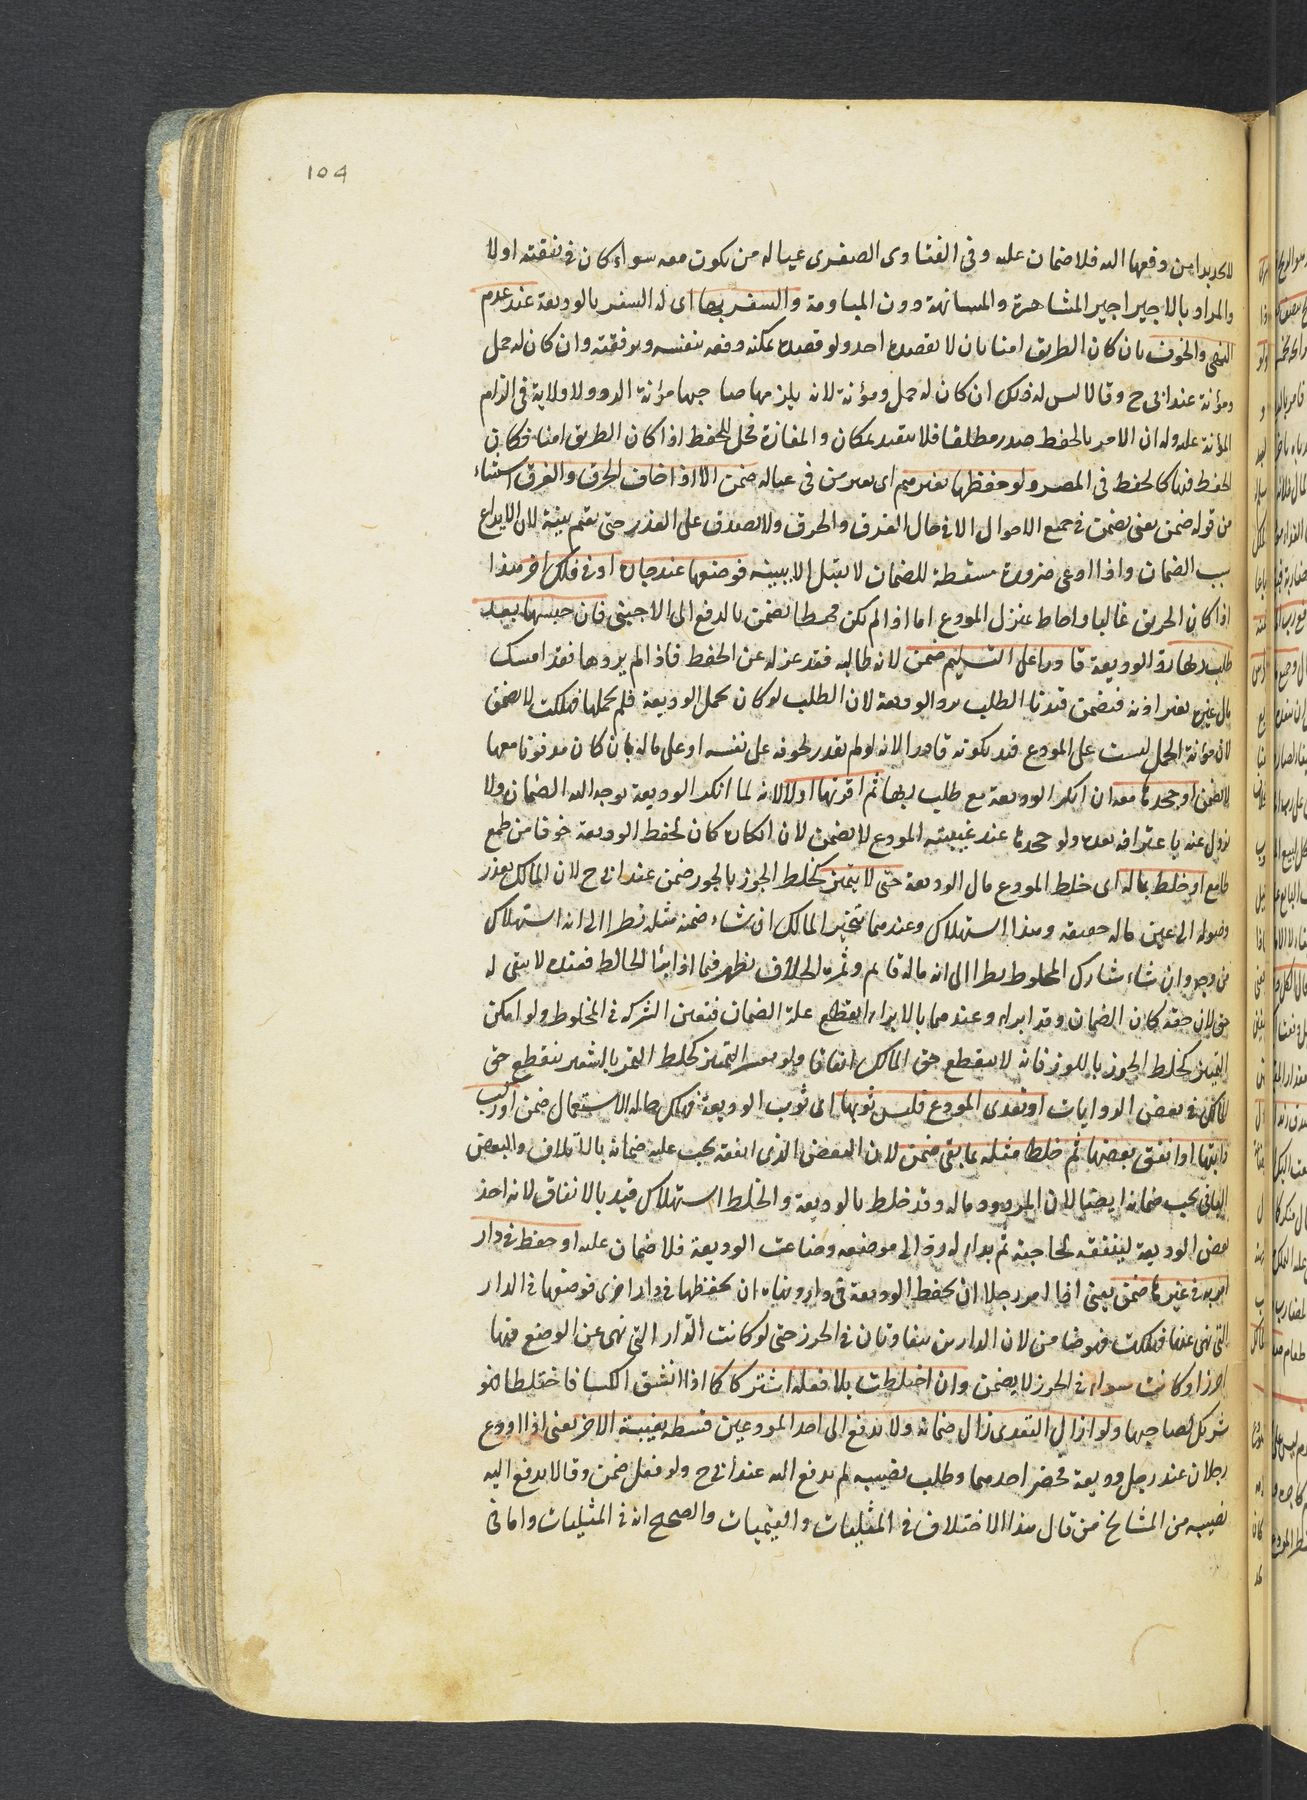 104
لا يجد بدا من دفعها اليه فلا ضمان عليه وفى الفتاوى الصغرى عياله من يكون معه سواء كان فى نفقته او لا
والمراد بالاجير اجير المشاهرة والمسانهة دون المياومة والسفر بها اى له السفر بالوديعة عند عدم
النهى والخوف بان كان الطريق امنا بان لا يقصده احد ولو قصده يمكنه دفعه بنفسه وبرفقته وان كان له حمل
ومؤنة عند ابى ح وقالا ليس له ذلك ان كان له حمل ومؤنة لانه يلزمها صاحبها مؤنة الرد ولا ولاية فى الزام
المؤنة عليه وله ان الامر بالحفظ صدر مطلقا فلا يتقيد بمكان والمفازة محل للحفظ اذا كان الطريق امنا فكان
الحفظ فيها كالحفظ فى المصر ولو حفظها بغيرهم اى بغير من فى عياله ضمن الا اذا خاف الحرق والغرق استثناء
من قوله ضمن يعنى يضمن فى جميع الاحوال الا فى حال الغرق والحرق ولا يصدق على العذر حتى يقيم بينة لان الايداع
سبب الضمان واذا ادعى ضرورة مسقطة للضمان لا يقبل الا ببينة فوضعها عند جاره او فى فلك اخر هذا
اذا كان الحريق غالبا واحاط بمنزل المودع اما اذا لم يكن محيطا يضمن بالدفع الى الاجنبى فان حبسها بعد
طلب ربها رد الوديعة قادرا على التسليم ضمن لانه طالبه فقد عزله عن الحفظ فاذا لم يردها فقد امسك
مال غيره بغير اذنه فيضمن قيدنا الطلب برد الوديعة لان الطلب لو كان بحمل الوديعة فلم يحملها فهلكت لا يضمن
لان مؤنة الحمل ليست على المودع قيد بكونه قادرا لانه لو لم يقدر لخوفه على نفسه او على ماله بان كان مدفونا معها
لا يضمن او جحدها معه ان انكر الوديعة مع طلب ربها ثم اقر بها اولا لانه لما انكر الوديعة يوجد اليه الضمان ولا
يزول عنه باعترافه بعده ولو جحدها عند غيبة المودع لا يضمن لان انكاره كان لحفظ الوديعة خوفا من طمع
طامع او خلط بماله اى خلط المودع مال الوديعة حتى لا يتميز كخلط الجوز بالجوز ضمن عند ابى ح لان المالك يعذر
وصوله الى عين ماله حقيقة وهذا استهلاك وعندهما يتخير المالك ان شاء ضمنه مثله نظرا الى انه استهلاك
من وجه وان شاء شارك المخلوط نظرا الى انه ماله قايم وثمرة الخلاف يظهر فيما اذا ابرأ الخالط فعنده لا يبقى له
حق لان حقه كان الضمان وقد ابراه وعندهما بالابراء انقطع علة الضمان فتعين الشركة فى المخلوط ولو امكن
التميز كخلط الجوز باللوز فانه لا ينقطع حق المالك اتفاقا ولو تعسر التميز كخلط البر بالشعير ينقطع حق
المالك فى بعض الروايات او تعدى المودع فلبس ثوبها اى ثوب الوديعة فهلك حالة الاستعمال ضمن او ركب
دابتها او انفق بعضها ثم خلط مثله بما بقى ضمن لان البعض الذى انفقه يجب عليه ضمانه بالاتلاف والبعض
الباقى يجب ضمانه ايضا لان المردود ماله وقد خلط بالوديعة والخلط استهلاك قيد بالانفاق لانه اخذ
بعض الوديعة لينفقه لحاجته ثم بدا له رد الى موضعه وضاعت الوديعة فلا ضمان عليه او حفظ فى دار
امر به فى غيرها ضمن يعنى اذا امر رجلا ان يحفظ الوديعة فى دار ونهاه ان يحفظها فى دار اخرى فوضعها فى الدار
التى نهى عنها فهلكت فهو ضامن لان الدارين يتفاوتان فى الحرز حتى لو كانت الدار التى نهى عن الوضع فيها
احرز او كانت سواء فى الحرز لا يضمن وان اختلطت بلا فعله اشتركا كما اذا انشق الكيسان فاختلطا فهو
شريك لصاحبها ولو ازال التعدى زال ضمانه ولا يدفع الى احد المودعين قسطه بغيبة الاخر يعنى اذا اودع
رجلان عند رجل وديعة فحضر احدهما وطلب نصيبه لم يدفع اليه عند ابى ح ولو فعل ضمن وقالا يدفع اليه
نصيبه من المشايخ من قال هذا الاختلاف فى المثليات والقيميات والصحيح انه فى المثليات واما فى